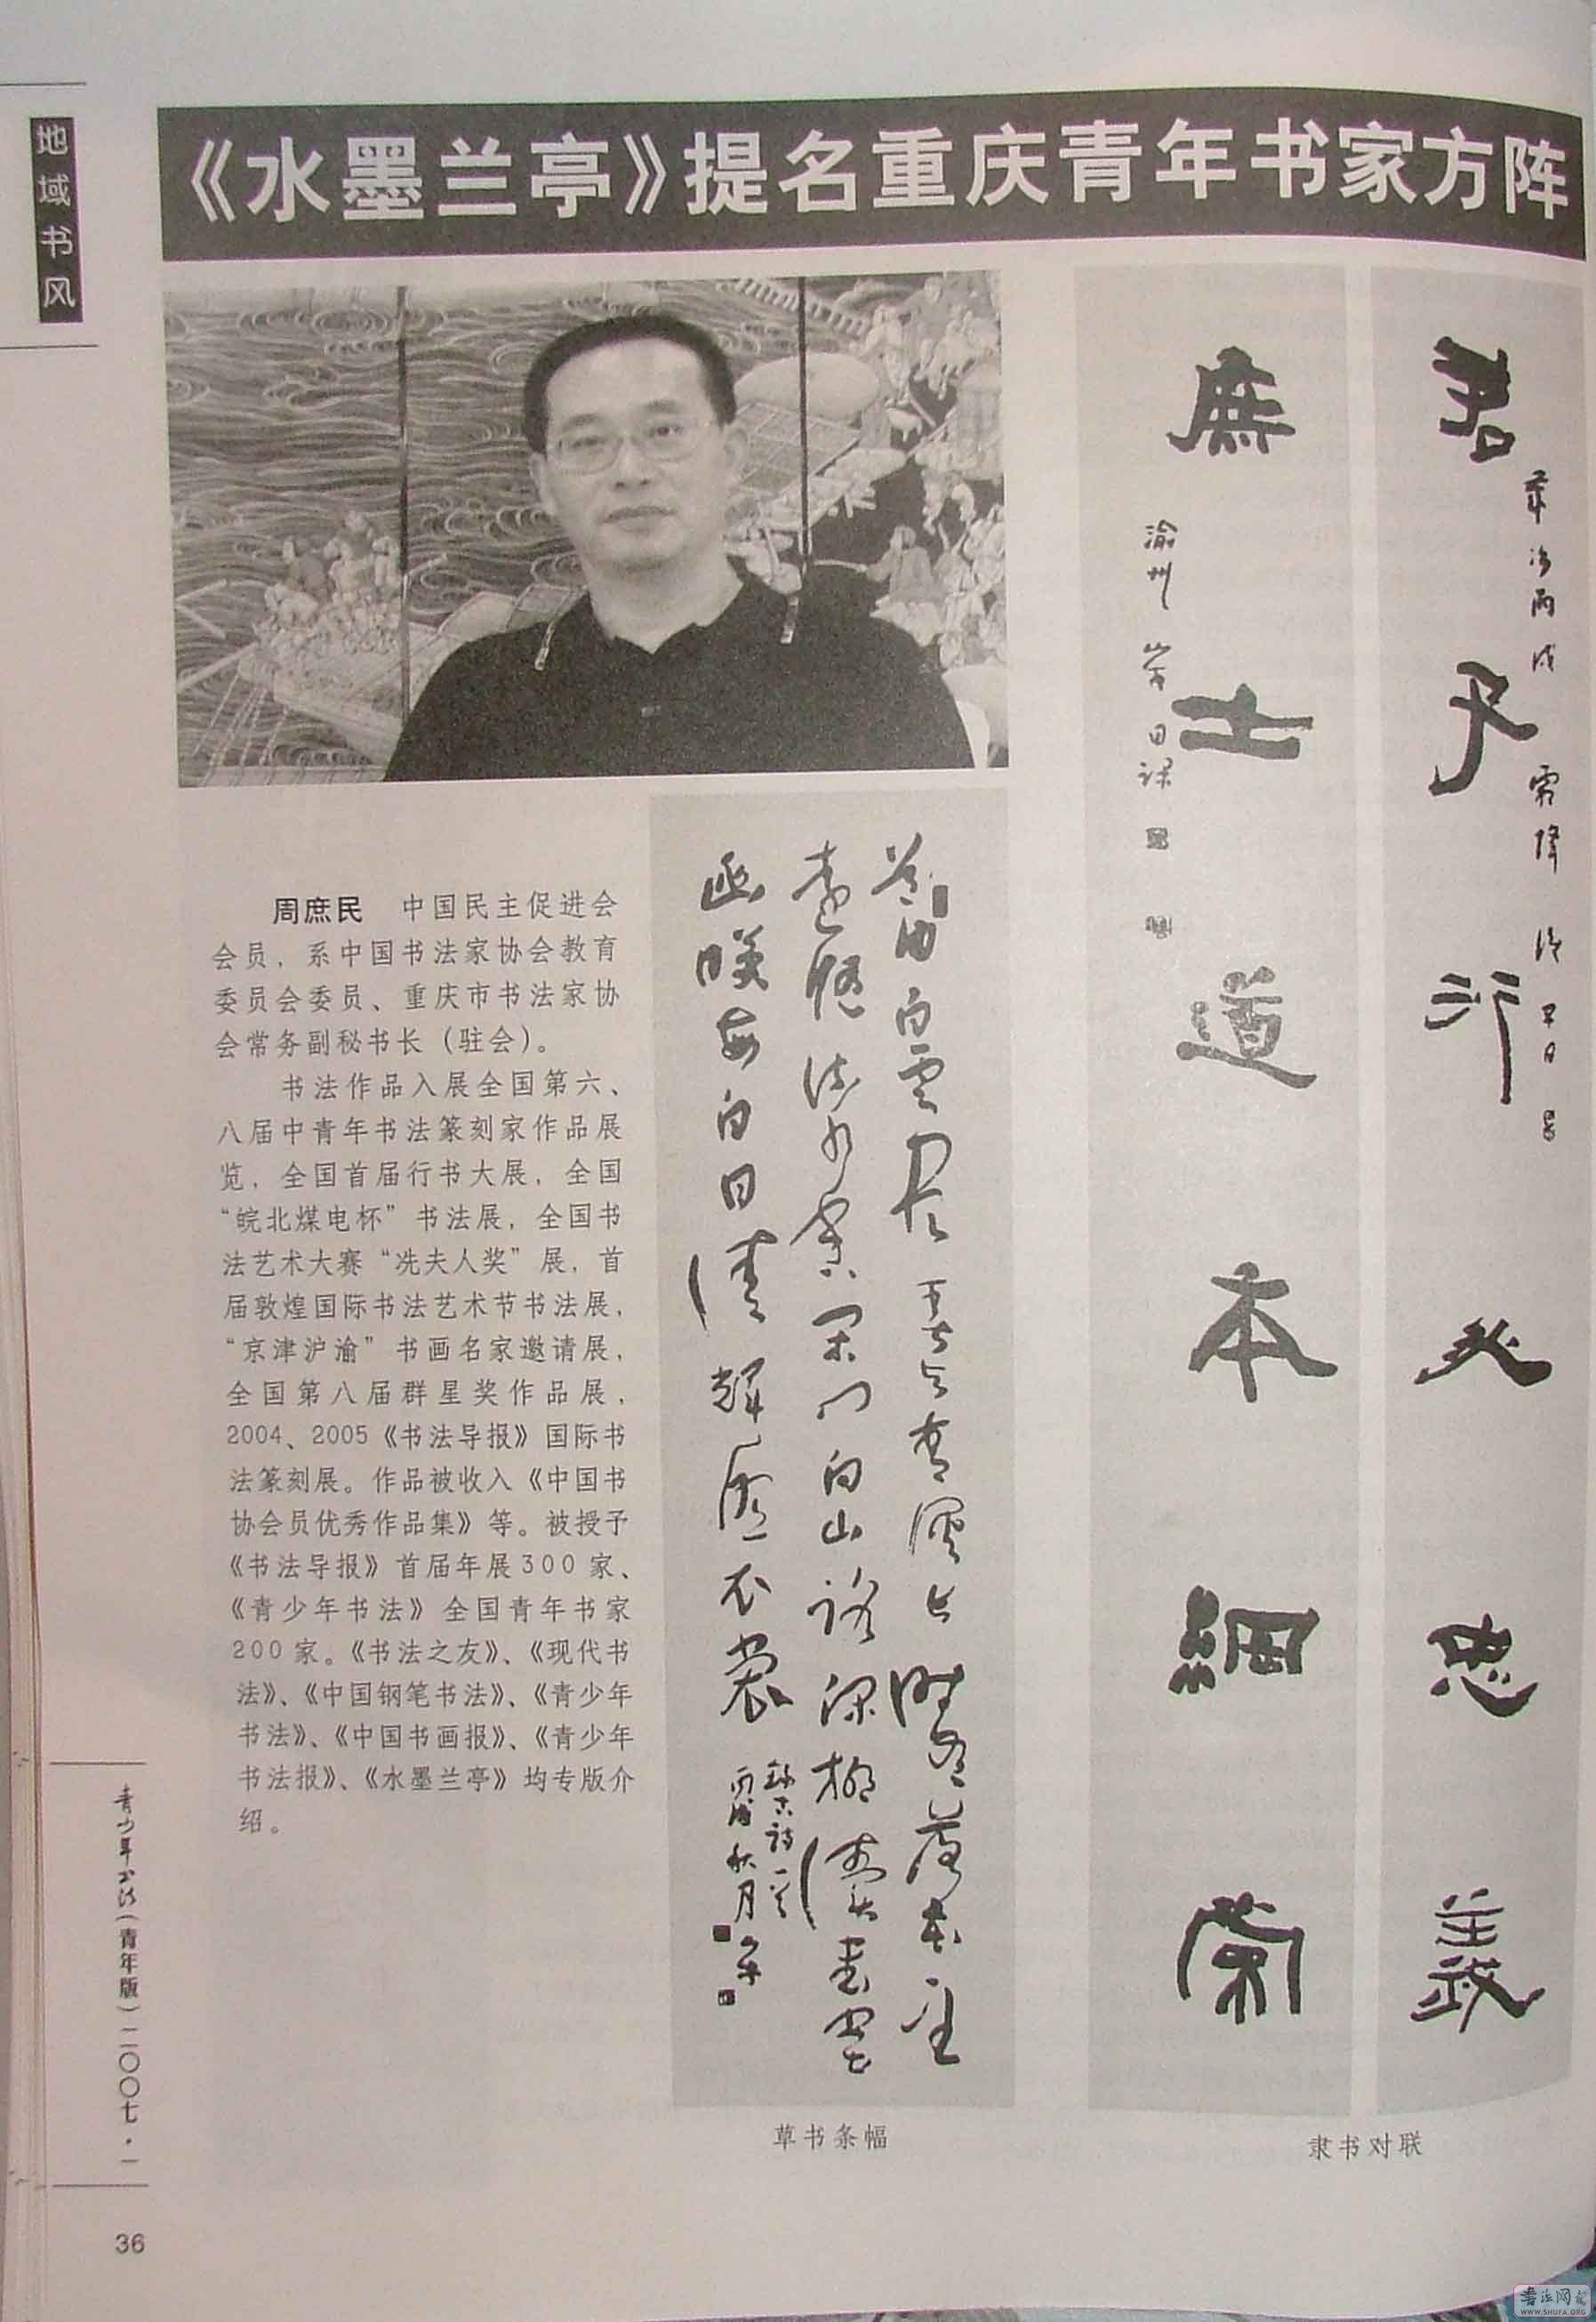 地域书风
《水墨兰亭》提名重庆青年书家方阵
周庶民 中国民主促进会
会员，系中国书法家协会教育
委员会委员、重庆市书法家协
会常务副秘书长（驻会）。
书法作品入展全国第六、
八届中青年书法篆刻家作品展
览，全国首届行书大展，全国
“皖北煤电杯”书法展，全国书
法艺术大赛“冼夫人奖”展，首
届敦煌国际书法艺术节书法展，
“京津沪渝”书画名家邀请展，
全国第八届群星奖作品展，
2004、2005《书法导报》国际书
法篆刻展。作品被收入《中国书
协会员优秀作品集》等。被授予
《书法导报》首届年展300家、
《青少年书法》全国青年书家
200家。《书法之友》、《现代书
法》、《中国钢笔书法》、《青少年
书法》、《中国书画报》、《青少年
书法报》、《水墨兰亭》均专版介
绍。
道由白雲盡春與青溪長時有落花至
遠隨流水香閑門向山路深柳讀書堂
幽映每白日清輝照衣裳
錄古詩一首
丙戌秋月
草书条幅
君子行必忠義
歲次丙戌霜降
士道本細
渝州 日課
隶书对联
青少年书法（青年版）二〇〇七·一
36
书法网
WWW.SHUFA.ORG